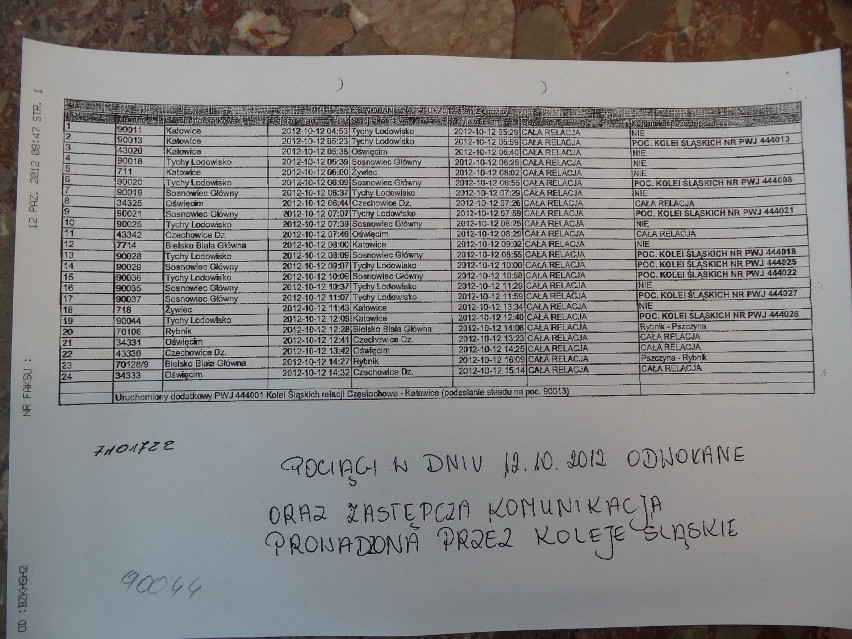 ODWOŁANE
1 90011 Katowice 2012-10-12 04:53 Tychy Lodowisko 2012-10-12 05:29 CAŁA RELACJA NIE
2 90013 Katowice 2012-10-12 05:23 Tychy Lodowisko 2012-10-12 05:59 CAŁA RELACJA POC. KOLEI ŚLĄSKICH NR PWJ 444013
3 43020 Katowice 2012-10-12 05:35 Oświęcim 2012-10-12 06:40 CAŁA RELACJA NIE
4 90018 Tychy Lodowisko 2012-10-12 05:39 Sosnowiec Główny 2012-10-12 06:25 CAŁA RELACJA NIE
5 711 Katowice 2012-10-12 06:00 Żywiec 2012-10-12 08:02 CAŁA RELACJA NIE
6 90020 Tychy Lodowisko 2012-10-12 06:09 Sosnowiec Główny 2012-10-12 06:55 CAŁA RELACJA POC. KOLEI ŚLĄSKICH NR PWJ 444008
7 90019 Sosnowiec Główny 2012-10-12 06:37 Tychy Lodowisko 2012-10-12 07:29 CAŁA RELACJA NIE
8 34325 Oświęcim 2012-10-12 06:44 Czechowice Dz. 2012-10-12 07:26 CAŁA RELACJA CAŁA RELACJA
9 90021 Sosnowiec Główny 2012-10-12 07:07 Tychy Lodowisko 2012-10-12 07:59 CAŁA RELACJA POC. KOLEI ŚLĄSKICH NR PWJ 444021
10 90026 Tychy Lodowisko 2012-10-12 07:39 Sosnowiec Główny 2012-10-12 08:25 CAŁA RELACJA NIE
11 43342 Czechowice Dz. 2012-10-12 07:46 Oświęcim 2012-10-12 08:29 CAŁA RELACJA CAŁA RELACJA
12 7714 Bielsko Biała Główna 2012-10-12 08:00 Katowice 2012-10-12 09:02 CAŁA RELACJA NIE
13 90028 Tychy Lodowisko 2012-10-12 08:09 Sosnowiec Główny 2012-10-12 08:55 CAŁA RELACJA POC. KOLEI ŚLĄSKICH NR PWJ 444018
14 90029 Sosnowiec Główny 2012-10-12 09:07 Tychy Lodowisko 2012-10-12 10:00 CAŁA RELACJA POC. KOLEI ŚLĄSKICH NR PWJ 444025
15 90036 Tychy Lodowisko 2012-10-12 10:09 Sosnowiec Główny 2012-10-12 10:58 CAŁA RELACJA POC. KOLEI ŚLĄSKICH NR PWJ 444022
16 90035 Sosnowiec Główny 2012-10-12 10:37 Tychy Lodowisko 2012-10-12 11:29 CAŁA RELACJA NIE
17 90037 Sosnowiec Główny 2012-10-12 11:07 Tychy Lodowisko 2012-10-12 11:59 CAŁA RELACJA POC. KOLEI ŚLĄSKICH NR PWJ 444027
18 718 Żywiec 2012-10-12 11:43 Katowice 2012-10-12 13:34 CAŁA RELACJA NIE
19 90044 Tychy Lodowisko 2012-10-12 12:09 Katowice 2012-10-12 12:40 CAŁA RELACJA POC. KOLEI ŚLĄSKICH NR PWJ 444028
20 70106 Rybnik 2012-10-12 12:28 Bielsko Biała Główna 2012-10-12 14:08 CAŁA RELACJA Rybnik - Pszczyna
21 34331 Oświęcim 2012-10-12 12:41 Czechowice Dz. 2012-10-12 13:23 CAŁA RELACJA CAŁA RELACJA
22 43330 Czechowice Dz. 2012-10-12 13:42 Oświęcim 2012-10-12 14:25 CAŁA RELACJA CAŁA RELACJA
23 70128/9 Bielsko Biała Główna 2012-10-12 14:27 Rybnik 2012-10-12 16:09 CAŁA RELACJA Pszczyna - Rybnik
24 34333 Oświęcim 2012-10-12 14:32 Czechowice Dz. 2012-10-12 15:14 CAŁA RELACJA CAŁA RELACJA
Uruchomiony dodatkowy PWJ 444001 Kolei Śląskich relacji Częstochowa - Katowice (podesłanie składu na poc. 90013)
12 PAŹ. 2012 08:47 STR. 1
NR FAKSU :
OD :BZKHSH2
7101722
POCIĄGI W DNIU 12.10.2012 ODWOŁANE
ORAZ ZASTĘPCZA KOMUNIKACJA
PROWADZONA PRZEZ KOLEJE ŚLĄSKIE
90044